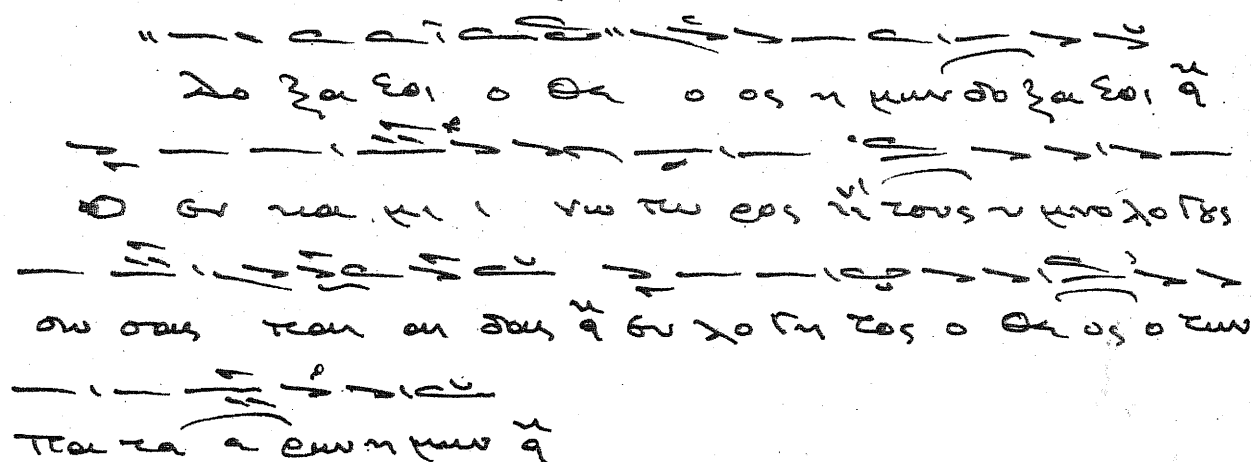 Δο ξα σοι ο Θε ο ος η μων δο ξα σοι
Ο εν κα μι ι νω πυ ρος τους υ μνο λο γȣς
σω σας παι αι δας ευ λο γη τος ο Θε ος ο των
Πα τε ε ρων η μων